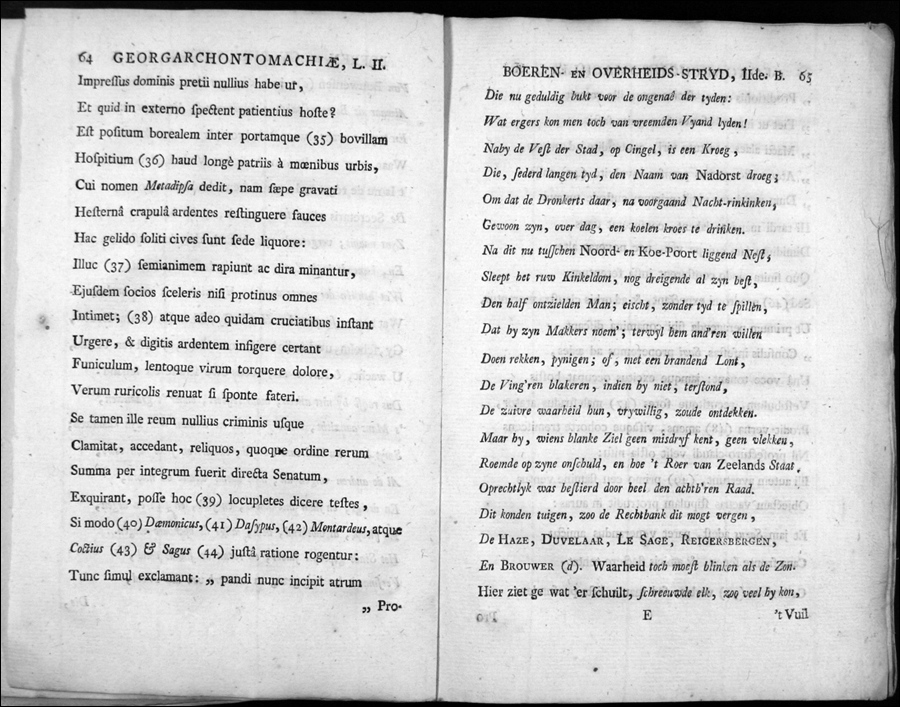 64 GEORGARCHONTOMACHIÆ, L. II.
Impreſſus dominis pretii nullius habe ur,
Et quid in externo ſpectent patientius hoſte?
Eſt poſitum borealem inter portamque (35) bovillam
Hoſpitium (36) haud longè patriis à mœnibus urbis,
Cui nomen Metadipſa dedit, nam ſæpe gravati
Heſternâ crapulâ ardentes reſtinguere fauces
Hac gelido ſoliti cives ſunt ſede liquore:
Illuc (37) ſemianimem rapiunt ac dira minantur,
Ejuſdem ſocios ſceleris niſi protinus omnes
Intimet; (38) atque adeo quidam cruciatibus inſtant
Urgere, & digitis ardentem inſigere certant
Funiculum, lentoque virum torquere dolore,
Verum ruricolis renuat ſi ſponte fateri.
Se tamen ille reum nullius criminis uſque
Clamitat, accedant, reliquos, quoque ordine rerum
Summa per integrum fuerit directa Senatum,
Exquirant, poſſe hoc (39) locupletes dicere teſtes,
Si modo (40) Dæmonicus, (41) Daſypus, (42) Montardeus, atque
Coctius (43) & Sagus (44) juſtâ ratione rogentur:
Tunc ſimul exclamant: „ pandi nunc incipit atrum
„ Pro-
BOEREN- EN OVERHEIDS-STRYD, IIde. B. 65
Die nu geduldig bukt voor de ongenaê der tyden:
Wat ergers kon men toch van vreemden Vyand lyden!
Naby de Veſt der Stad, op Cingel, is een Kroeg,
Die, ſederd langen tyd, den Naam van Nadorst droeg;
Om dat de Dronkerts daar, na voorgaand Nacht-rinkinken,
Gewoon zyn, over dag, een koelen kroes te drinken.
Na dit nu tuſſchen Noord- en Koe-Poort liggend Neſt,
Sleept het ruw Kinkeldom, nog dreigende al zyn beſt,
Den half ontzielden Man; eiſcht, zonder tyd te ſpillen,
Dat hy zyn Makkers noem'; terwyl hem and'ren willen
Doen rekken, pynigen; of, met een brandend Lont,
De Ving'ren blakeren, indien hy niet, terſtond,
De zuivre waarheid hun, vrywillig, zoude ontdekken.
Maar hy, wiens blanke Ziel geen misdryf kent, geen vlekken,
Roemde op zyne onſchuld, en hoe 't Roer van Zeelands Staat,
Oprechtlyk was beſtierd door heel den achtb'ren Raad.
Dit konden tuigen, zoo de Rechtbank dit mogt vergen,
De HAZE, DUVELAAR, LE SAGE, REIGERSBERGEN,
En BROUWER (d). Waarheid toch moeſt blinken als de Zon.
Hier ziet ge wat 'er ſchuilt, ſchreeuwde elk, zoo veel hy kon,
E 't Vuil